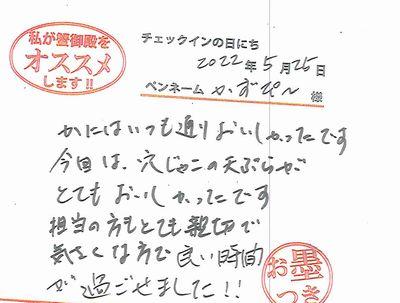 私が碧御殿を
オススメ
します!!
チェックインの日にち
2022年5月25日
ペンネーム かずぴん 様
かにはいつも通りおいしかったです
今回は、穴じゃこの天ぷらが
とてもおいしかったです
担当の方もとても親切で
気さくな方で良い時間
が過ごせました!!
お墨
つき